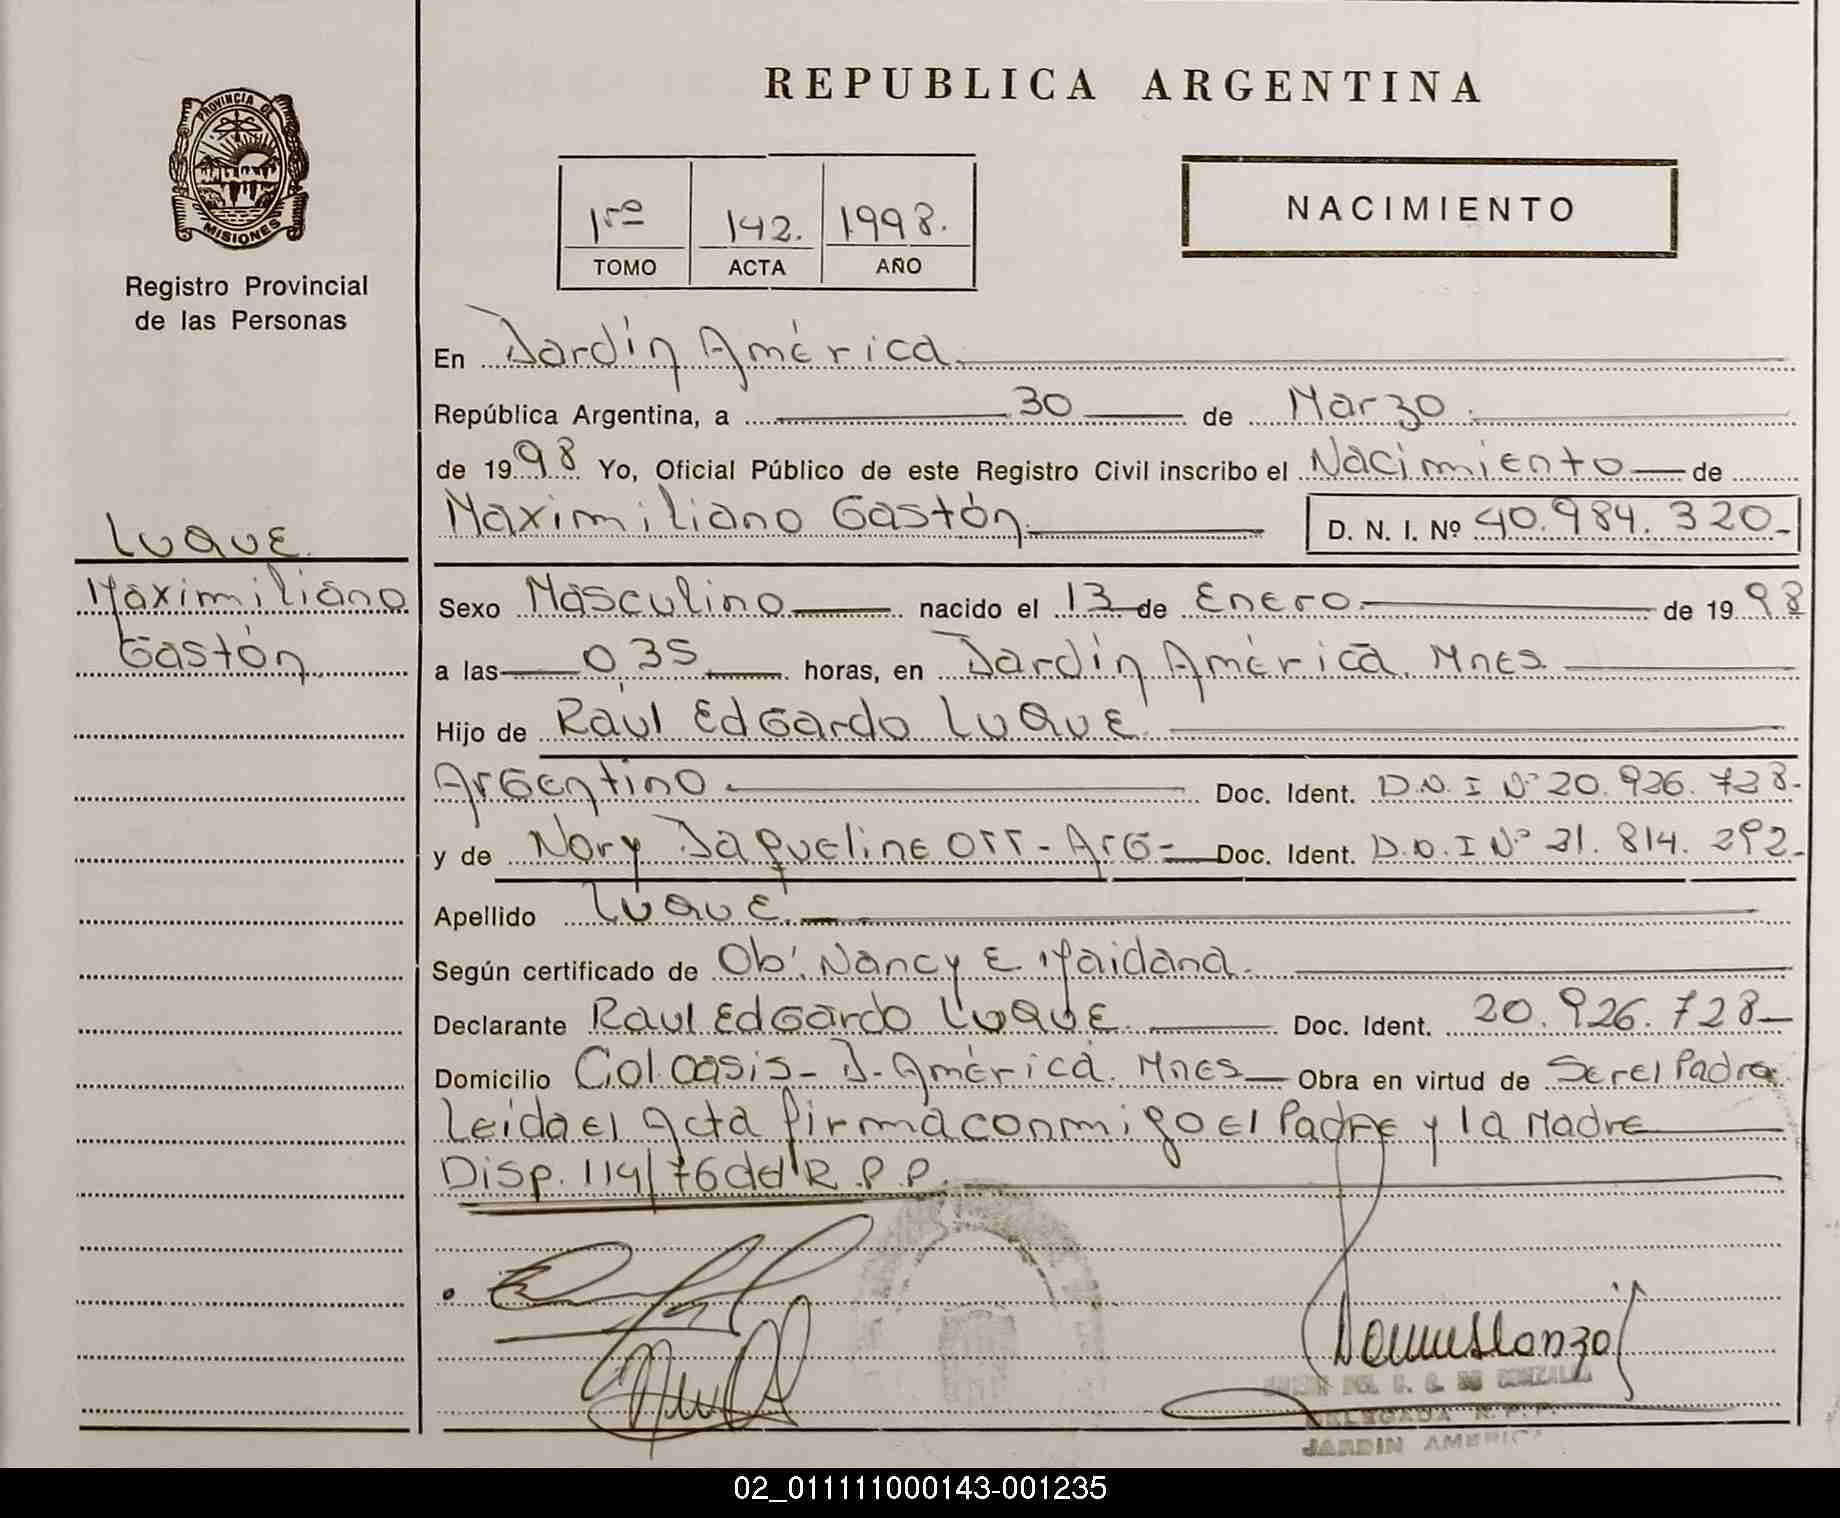 PROVINCIA DE
MISIONES
Registro Provincial
de las Personas
LUQUE
Maximiliano
Gastón
REPUBLICA ARGENTINA
1ro 142. 1998.
TOMO ACTA AÑO
NACIMIENTO
En Jardín América
República Argentina, a 30 de Marzo
de 1998 Yo, Oficial Público de este Registro Civil inscribo el Nacimiento de
Maximiliano Gastón D. N. I. Nº 40.984.320
Sexo Masculino nacido el 13 de Enero de 1998
a las 0,35 horas, en Jardín América. Mnes
Hijo de Raúl Edgardo Luque
Argentino Doc. Ident. D.N.I Nº 20.926.728
y de Nory Jaqueline Ott - Arg - Doc. Ident. D.N.I Nº 814.292
Apellido Luque
Según certificado de Ob. Nancy E Maidana
Declarante Raul Edgardo Luque Doc. Ident. 20.926.728
Domicilio Col. Oasis - J. América. Mnes Obra en virtud de Ser el Padre
Leida el Acta firma conmigo el Padre y la Madre
Disp. 114/76 del R.P.P.
DELEGADA R.P.P.
JARDIN AMERICA
02_011111000143-001235